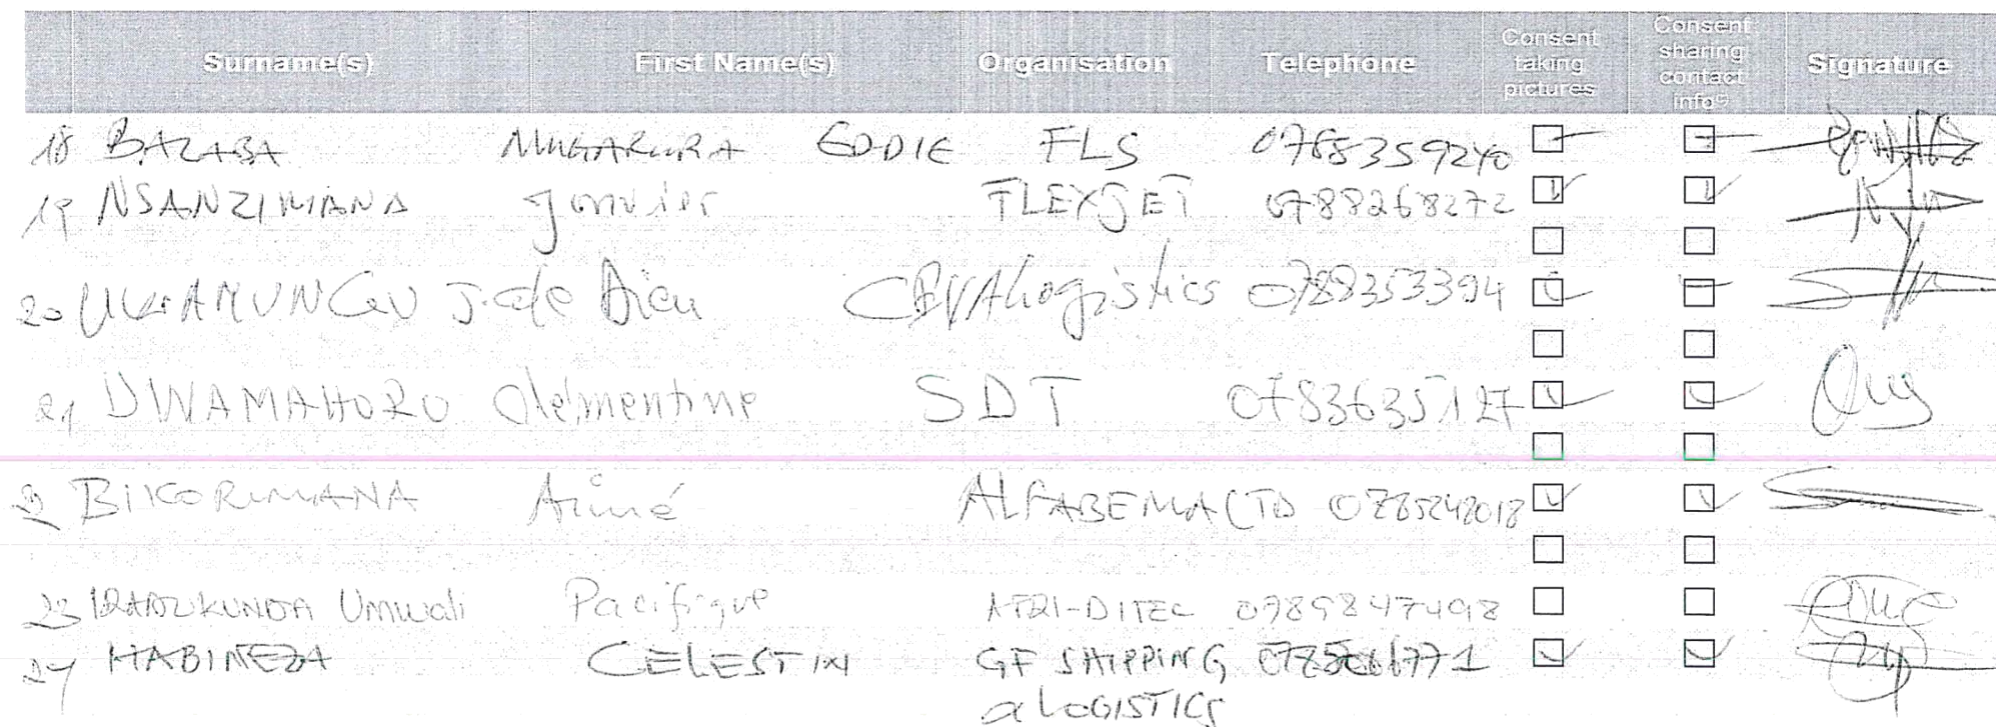 Surname(s) First Name(s) Organisation Telephone Consent taking pictures Consent sharing contact info? Signature
18 BAZABA MUGARURA EDDIE FLS 0788359240
19 NSANZIMANA Janvier FLEXJET 0788268272
20 UKAMUNGU J. de Dieu CEVA Logistics 0788353394
21 UWAMAHORO Clémentine SDT 0783635127
BIKORIMANA Aimé ALFABEMA LTD 0785242018
23 Umwali Pacifique ATRI-DITEC 0789847498
24 HABINEZA CELESTIN GF SHIPPING
& LOGISTICS